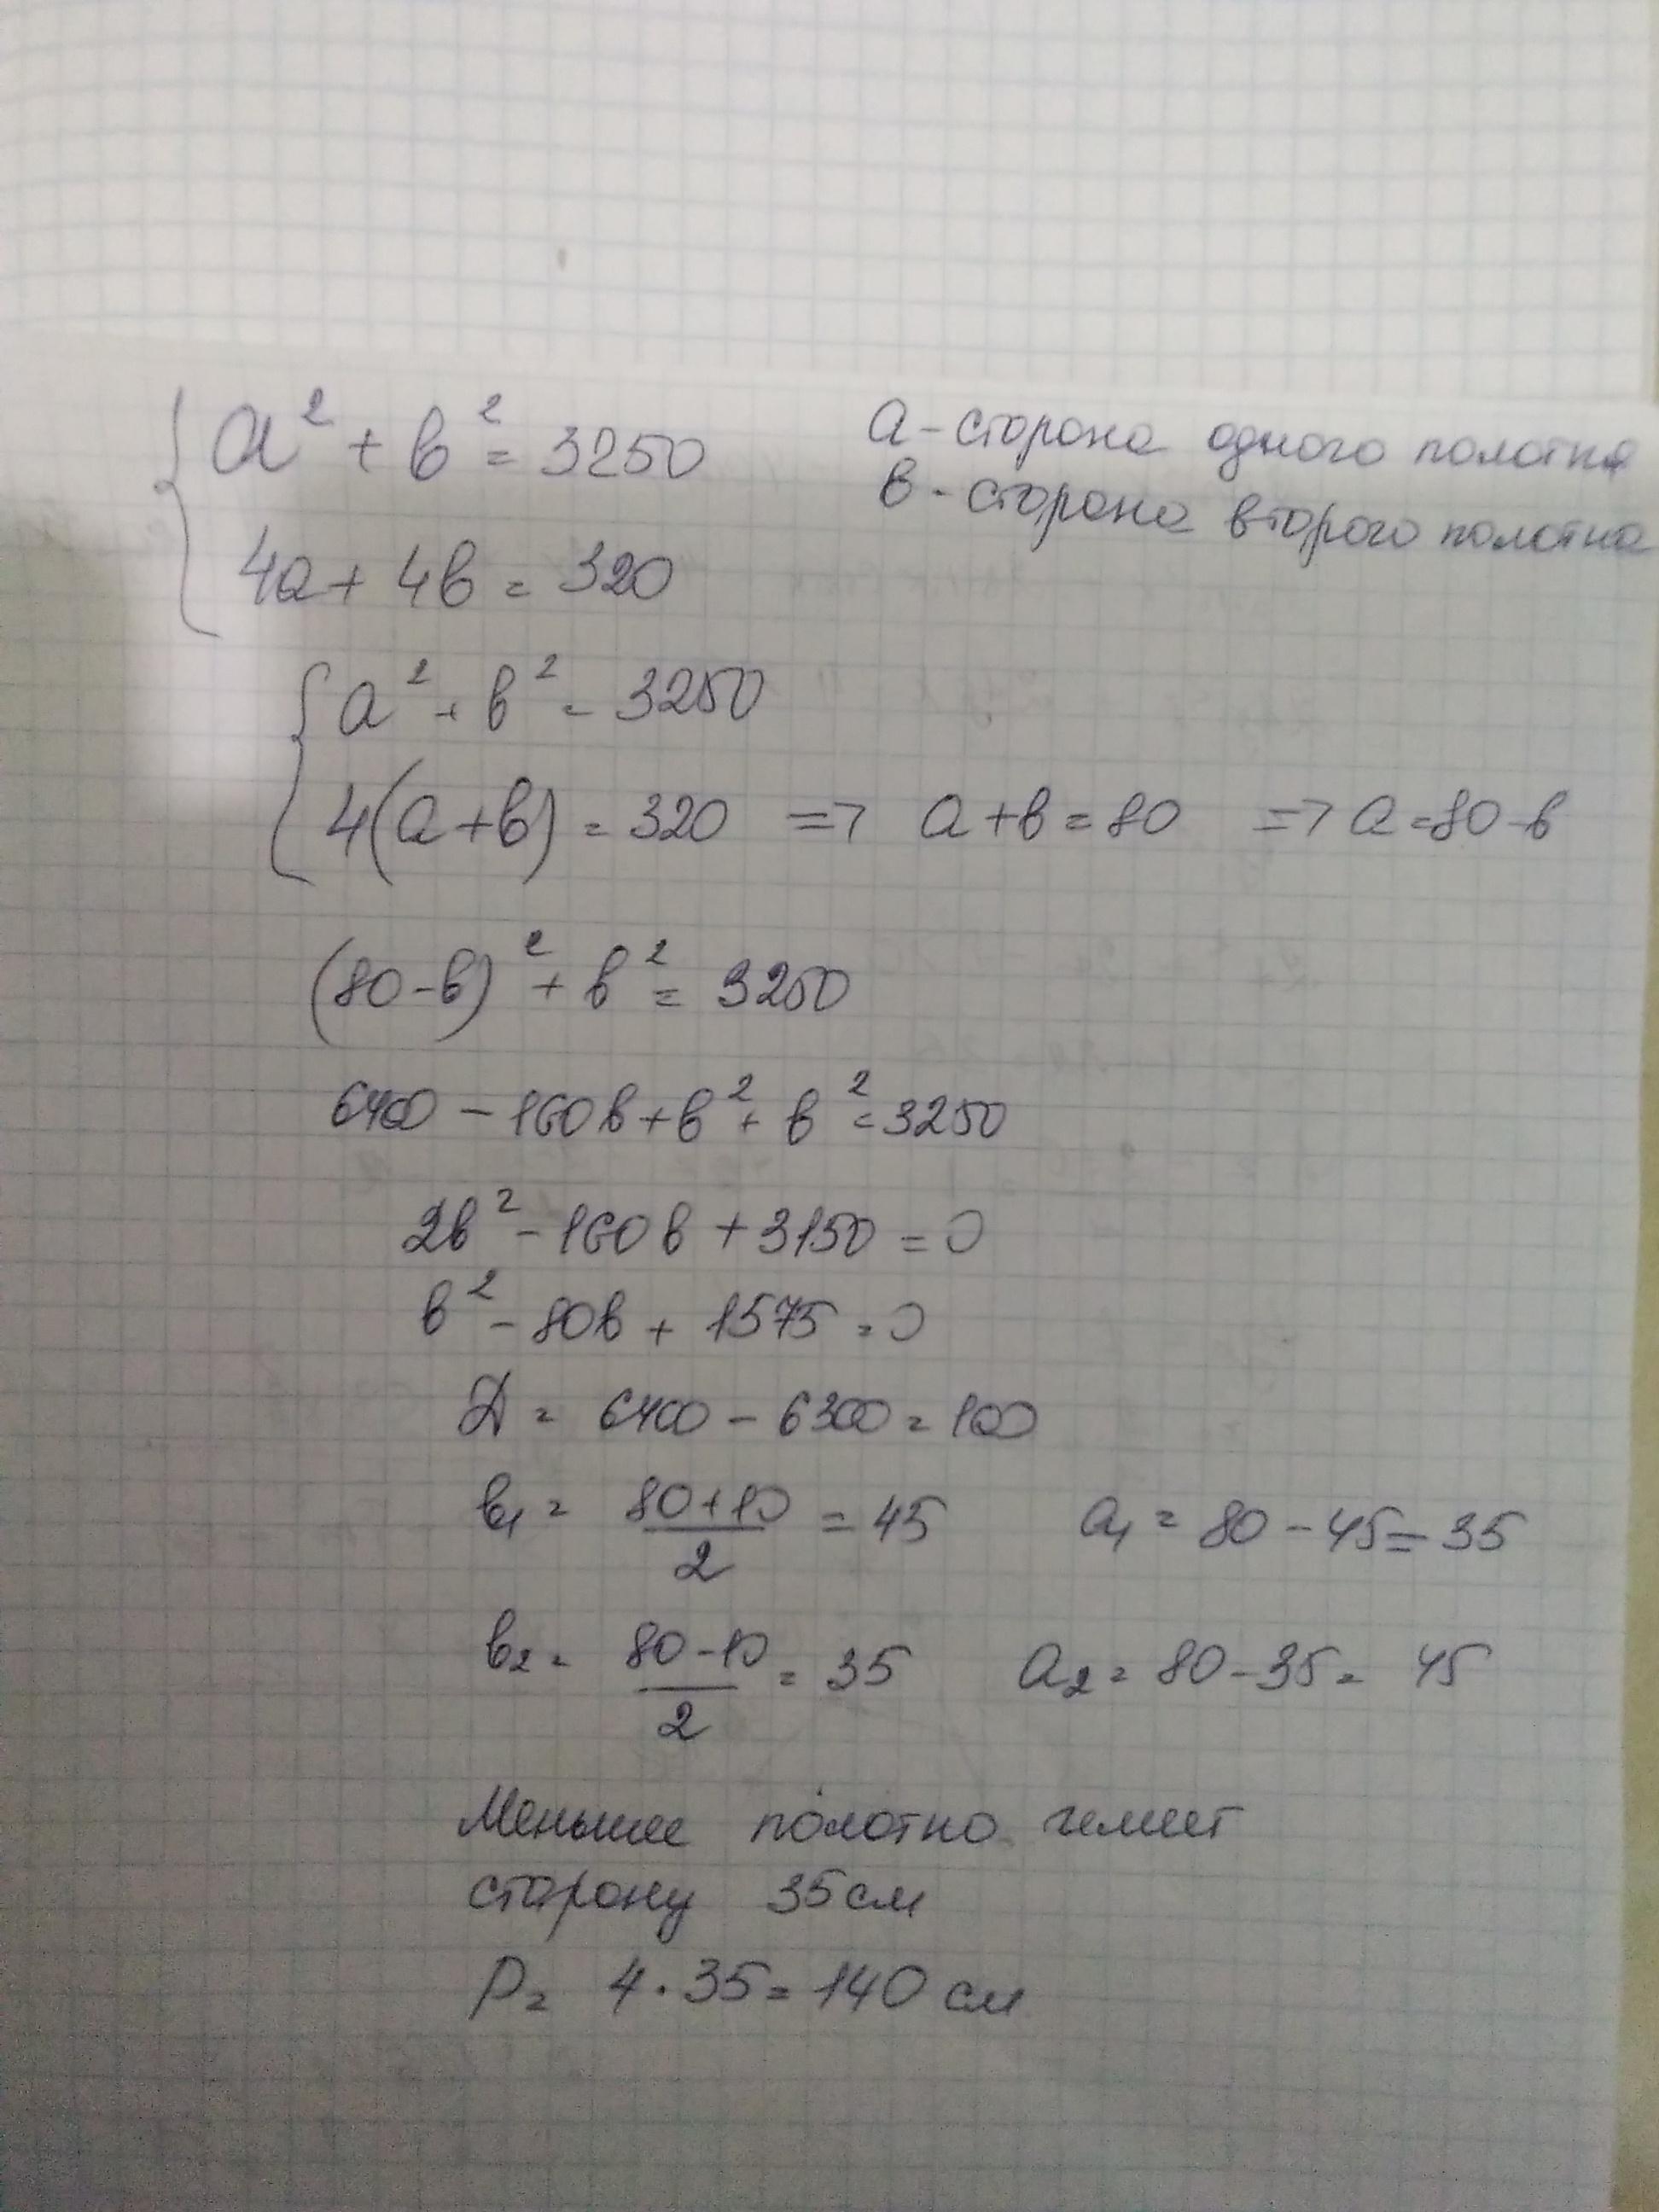 a² + в² = 3250
а - сторона одного полотна
в - сторона второго полотна
4a + 4в = 320
a² + в² = 3250
4(a+в) = 320 => a+в = 80 => a = 80-в
(80-в)² + в² = 3250
6400 - 160в + в² + в² = 3250
2в² - 160в + 3150 = 0
в² - 80в + 1575 = 0
D = 6400 - 6300 = 100
в₁ = (80+10)/2 = 45 a₁ = 80 - 45 = 35
в₂ = (80-10)/2 = 35 a₂ = 80 - 35 = 45
Меньшее полотно имеет
сторону 35 см
P = 4 · 35 = 140 см